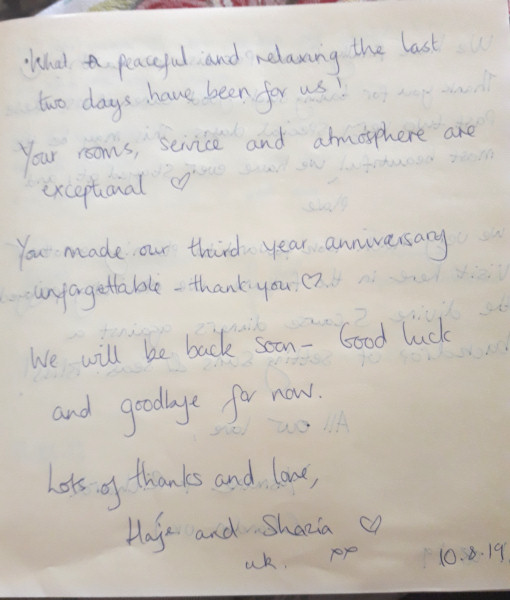 What a peaceful and relaxing the last
two days have been for us!
Your rooms, service and atmosphere are
exceptional ♡
You made our third year anniversary
unforgettable - thank you ♡
We will be back soon - Good luck
and goodbye for now.
Lots of thanks and love,
and Shazia ♡
uk. xx 10.8.19